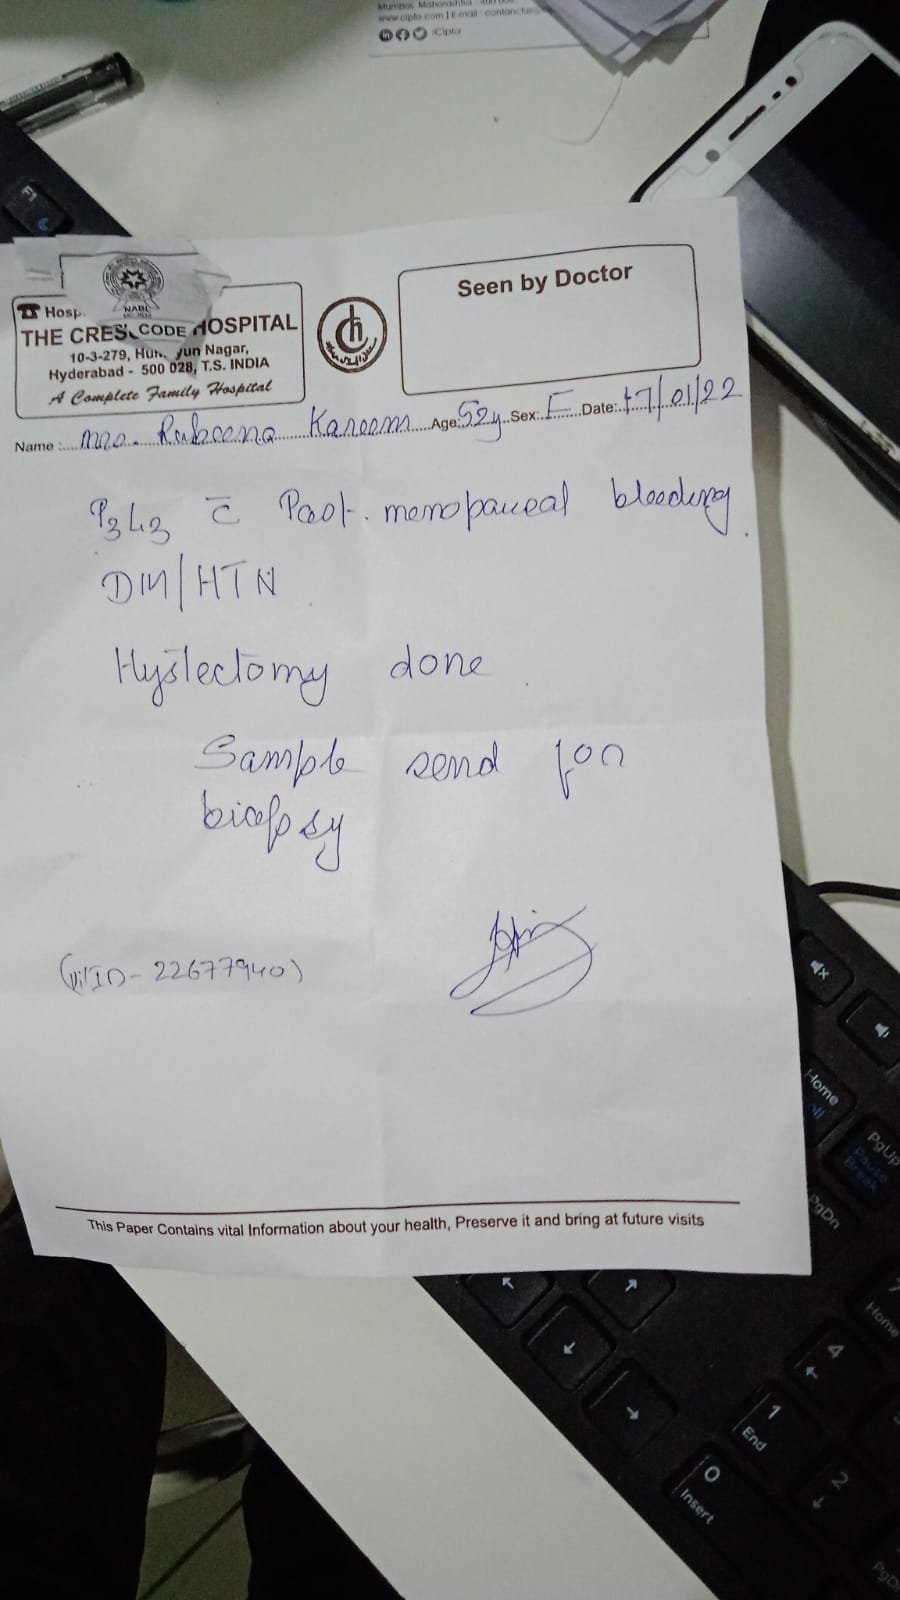 Mumbai, Maharashtra
www.cipla.com | E-mail
/Cipla
F1
NABL
CODE
Hosp.
THE CRES HOSPITAL
10-3-279, Hum yun Nagar,
Hyderabad - 500 028, T.S. INDIA
A Complete Family Hospital
Seen by Doctor
Name : Mrs. Rubeena Kareem Age: 52y Sex: F Date: 17/01/22
P3L3 c̄ Post. menopausal bleeding
DM/HTN
Hystectomy done
Sample send for
biopsy
ID - 22677940)
This Paper Contains vital Information about your health, Preserve it and bring at future visits
Home
PgUp
Pause
Break
PgDn
Home
4
1
End
2
0
Insert
PgD